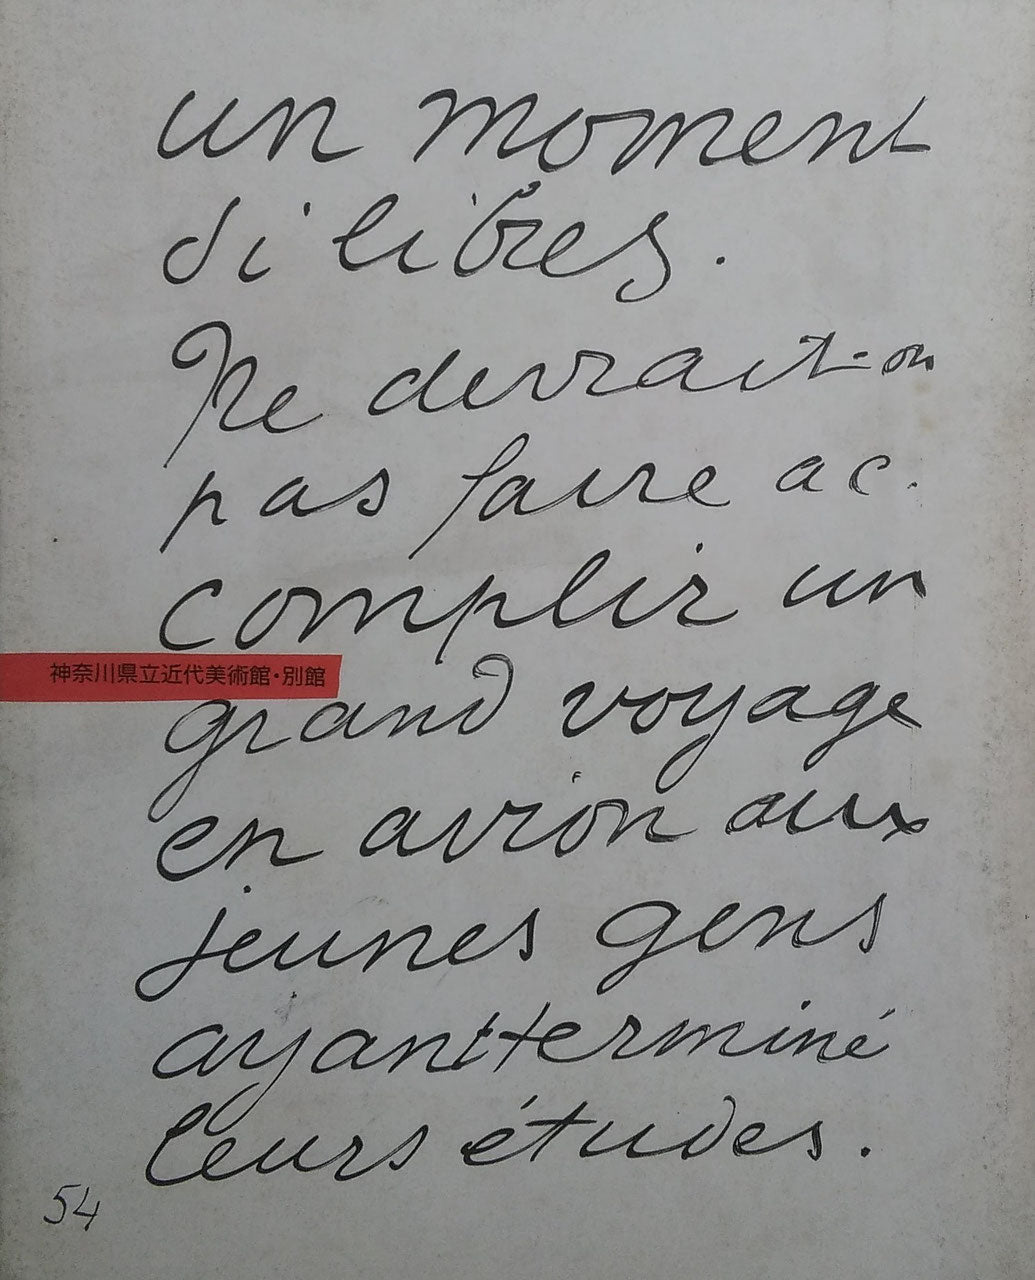 un moment
si libres.
Ne devrait-on
pas faire ac.
complir un
神奈川県立近代美術館・別館
grand voyage
en avion aux
jeunes gens
ayant terminé
leurs études.
54